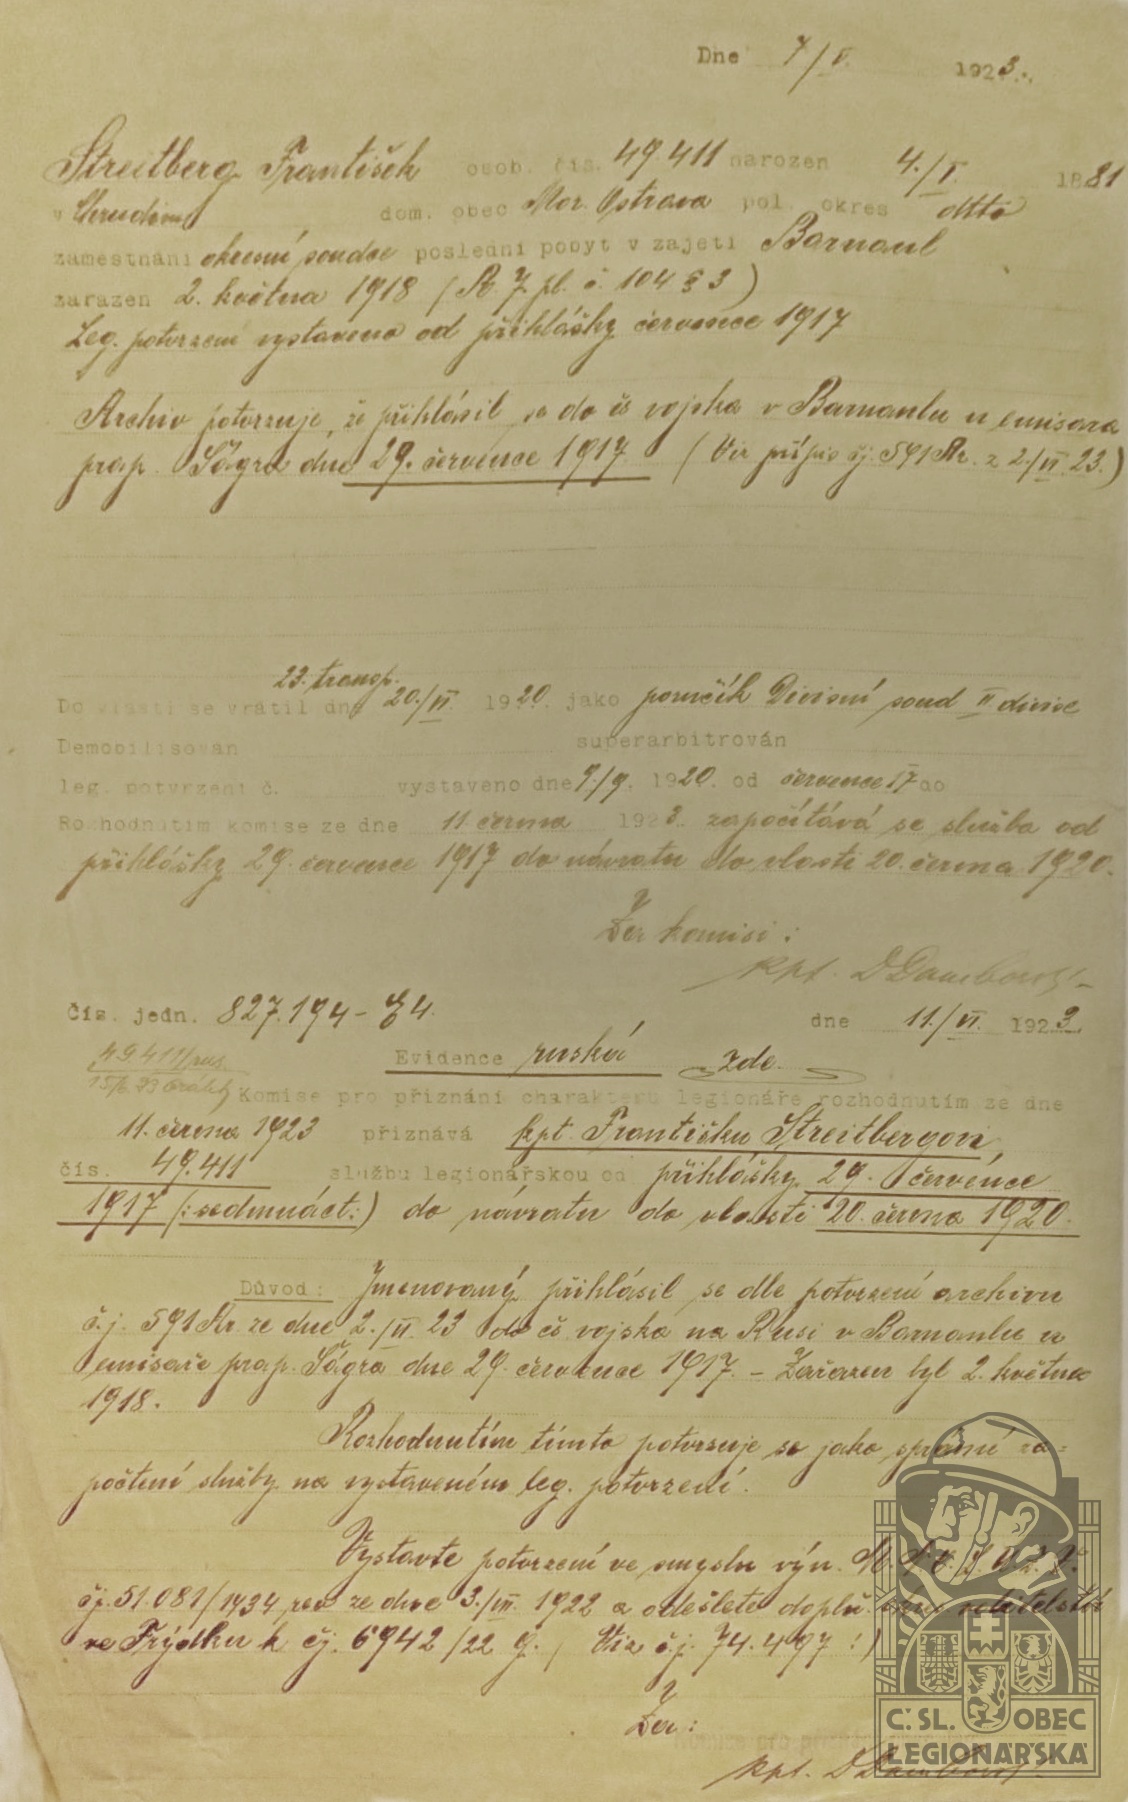 Dne 7/V. 1923.
Streitberg František osob. čís. 49.411 narozen 4./V. 1881
v Chrudimi dom. obec Mor. Ostrava pol. okres dtto
zaměstnání okresní soudce poslední pobyt v zajetí Barnaul
zařazen 2. května 1918 (R. 7 pl. č. 104 § 3)
Leg. potvrzení vystaveno od přihlášky července 1917
Archiv potvrzuje, že přihlásil se do čs vojska v Barnaulu u emisara
prap. Ságra dne 29. července 1917 (Viz přípis čj. 591 Ar. z 2./VI. 23.)
23. transp.
Do vlasti se vrátil dne 20./VI. 1920. jako poručík Divisní soud II divise
Demobilisován superarbitrován
leg. potvrzení č. vystaveno dne 9./9. 1920. od července 17 do
Rozhodnutím komise ze dne 11. června 1923. započítává se služba od
přihlášky 29. července 1917 do návratu do vlasti 20. června 1920.
Za komisi:
kpt.
Čís. jedn. 827.194-E4. dne 11./VI. 1923.
Evidence ruská zde.
49411/rus.
Komise pro přiznání charakteru legionáře rozhodnutím ze dne
11. června 1923 přiznává kpt. Františku Streitbergovi,
čís. 49.411 službu legionářskou od přihlášky 29. července
1917 (:sedmnáct:) do návratu do vlasti 20. června 1920.
Důvod: Jmenovaný přihlásil se dle potvrzení archivu
č.j. 591 Ar. ze dne 2./VI. 23 do čs vojska na Rusi v Barnaulu u
emisaře prap. Ságra dne 29. července 1917. – Zařazen byl 2. května
1918.
Rozhodnutím tímto potvrzuje se jako správné za=
počtení služby na vystaveném leg. potvrzení.
Vystavte potvrzení ve smyslu výn.
čj. 51.081/1434 ze dne 3./VII. 1922 a odešlete doplň. okr. velitelství
ve Frýdku k čj. 6942/22 (Viz č.j. 74.497!)
Za:
kpt.
Č. SL. OBEC
LEGIONÁŘSKÁ